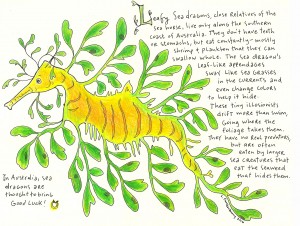 Leafy Sea dragons, close relatives of the
sea horse, live only along the southern
coast of Australia. They don't have teeth
or stomachs, but eat constantly - mostly
shrimp & plankton that they can
swallow whole. The sea dragon's
leaf-like appendages
sway like sea grasses
in the currents and
even change colors
to help it hide.
These tiny illusionists
drift more than swim,
going where the
foliage takes them.
They have no real predators,
but are often
eaten by larger
sea creatures that
eat the seaweed
that hides them.
In Australia, sea
dragons are
thought to bring
Good Luck!